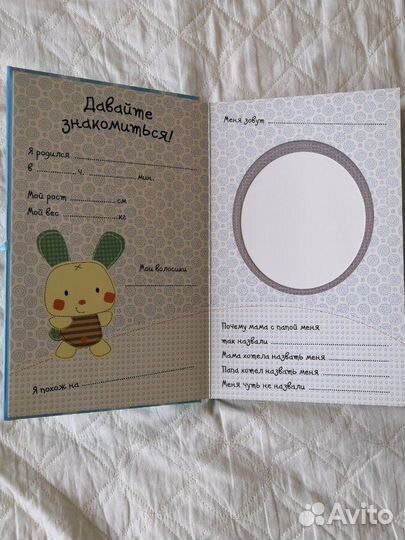 Давайте
знакомиться!
Я родился
в ч. мин.
Мой рост см
Мой вес кг
Мои волосики
Я похож на
Меня зовут
Почему мама с папой меня
так назвали
Мама хотела назвать меня
Папа хотел назвать меня
Меня чуть не назвали
Avito